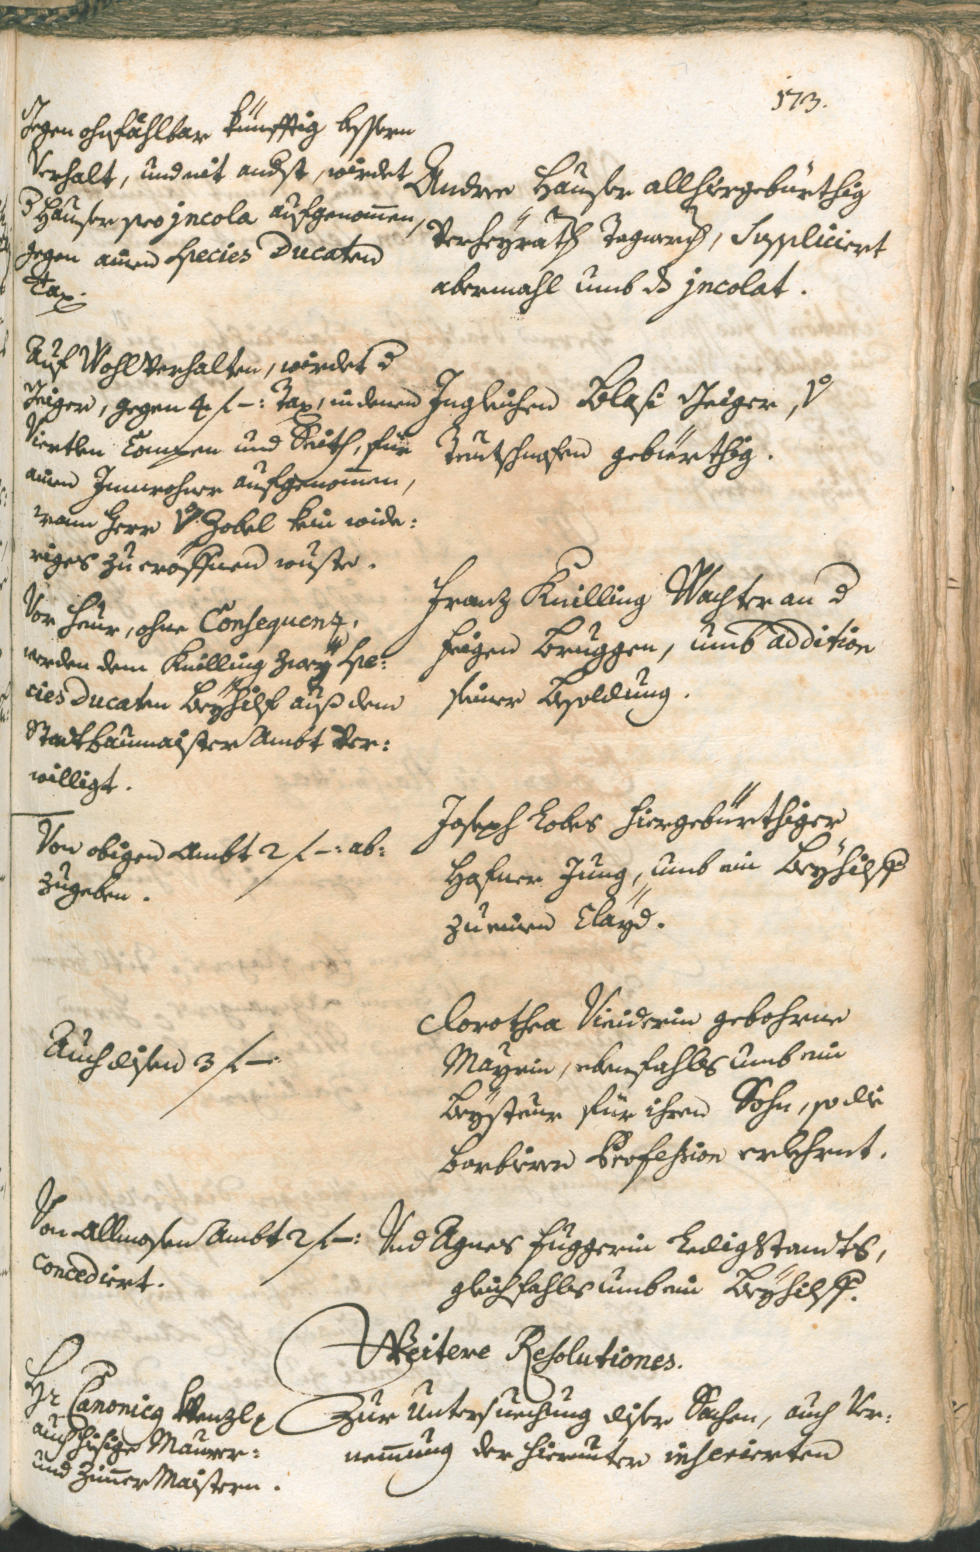 173.
Gegen ohnfählbar künfftig bessern
Verhalt, und nit andst, wirdet
d Hauser pro jncola aufgenom̄en,
gegen ainen Species Ducaten
Tax.
Andree Hauser allhiergebürthig
Verheyrath Tagwerch, Suppliciert
abermahl umb ds jncolat.
Auf Wohlverhalten, wirdet d
Geiger, gegen 4 f –: Tax, in denen
Viertlen Campen und Reith, für
ainen Innwohner aufgenom̄en,
wann Herr v. Zobel kein wide:
riges zu eröffnen wuste.
Ingleichen Blasi Geiger, v
Teutschnofen gebürthig.
Vor heur, ohne Consequenz,
werden dem Knilling zwey Spe:
cies Ducaten Beyhilf auß dem
Stadtbaumaister Ambt Ver:
willigt.
Franz Knilling Wachter an d
Eisen Bruggen, umb addition
seiner Besoldung.
Von obigen Ambt 2 f –: ab:
zugeben.
Joseph Lobes hiergebürthiger
Hafner Jung, umb ein Beyhilff
zu einen Clayd.
Auch disen 3 f –:
Dorothea Viniderin gebohrne
Mayrin, ebenfahls umb ein
Beysteur für ihren Sohn, so die
Barbierer Profession erlehrnt.
Von Allmosen Ambt 2 f –:
concediert.
Und Agnes Fuggerin Ledig Standts,
gleichfahls umb ein Beyhilff.
Weitere Resolutiones.
Hr Canonicg Wenzl,
auch hiesige Maurer:
und Zim̄er Maistern.
Zur Untersuechung diser Sachen, auch Ver:
nem̄ung der hierunter inserierten